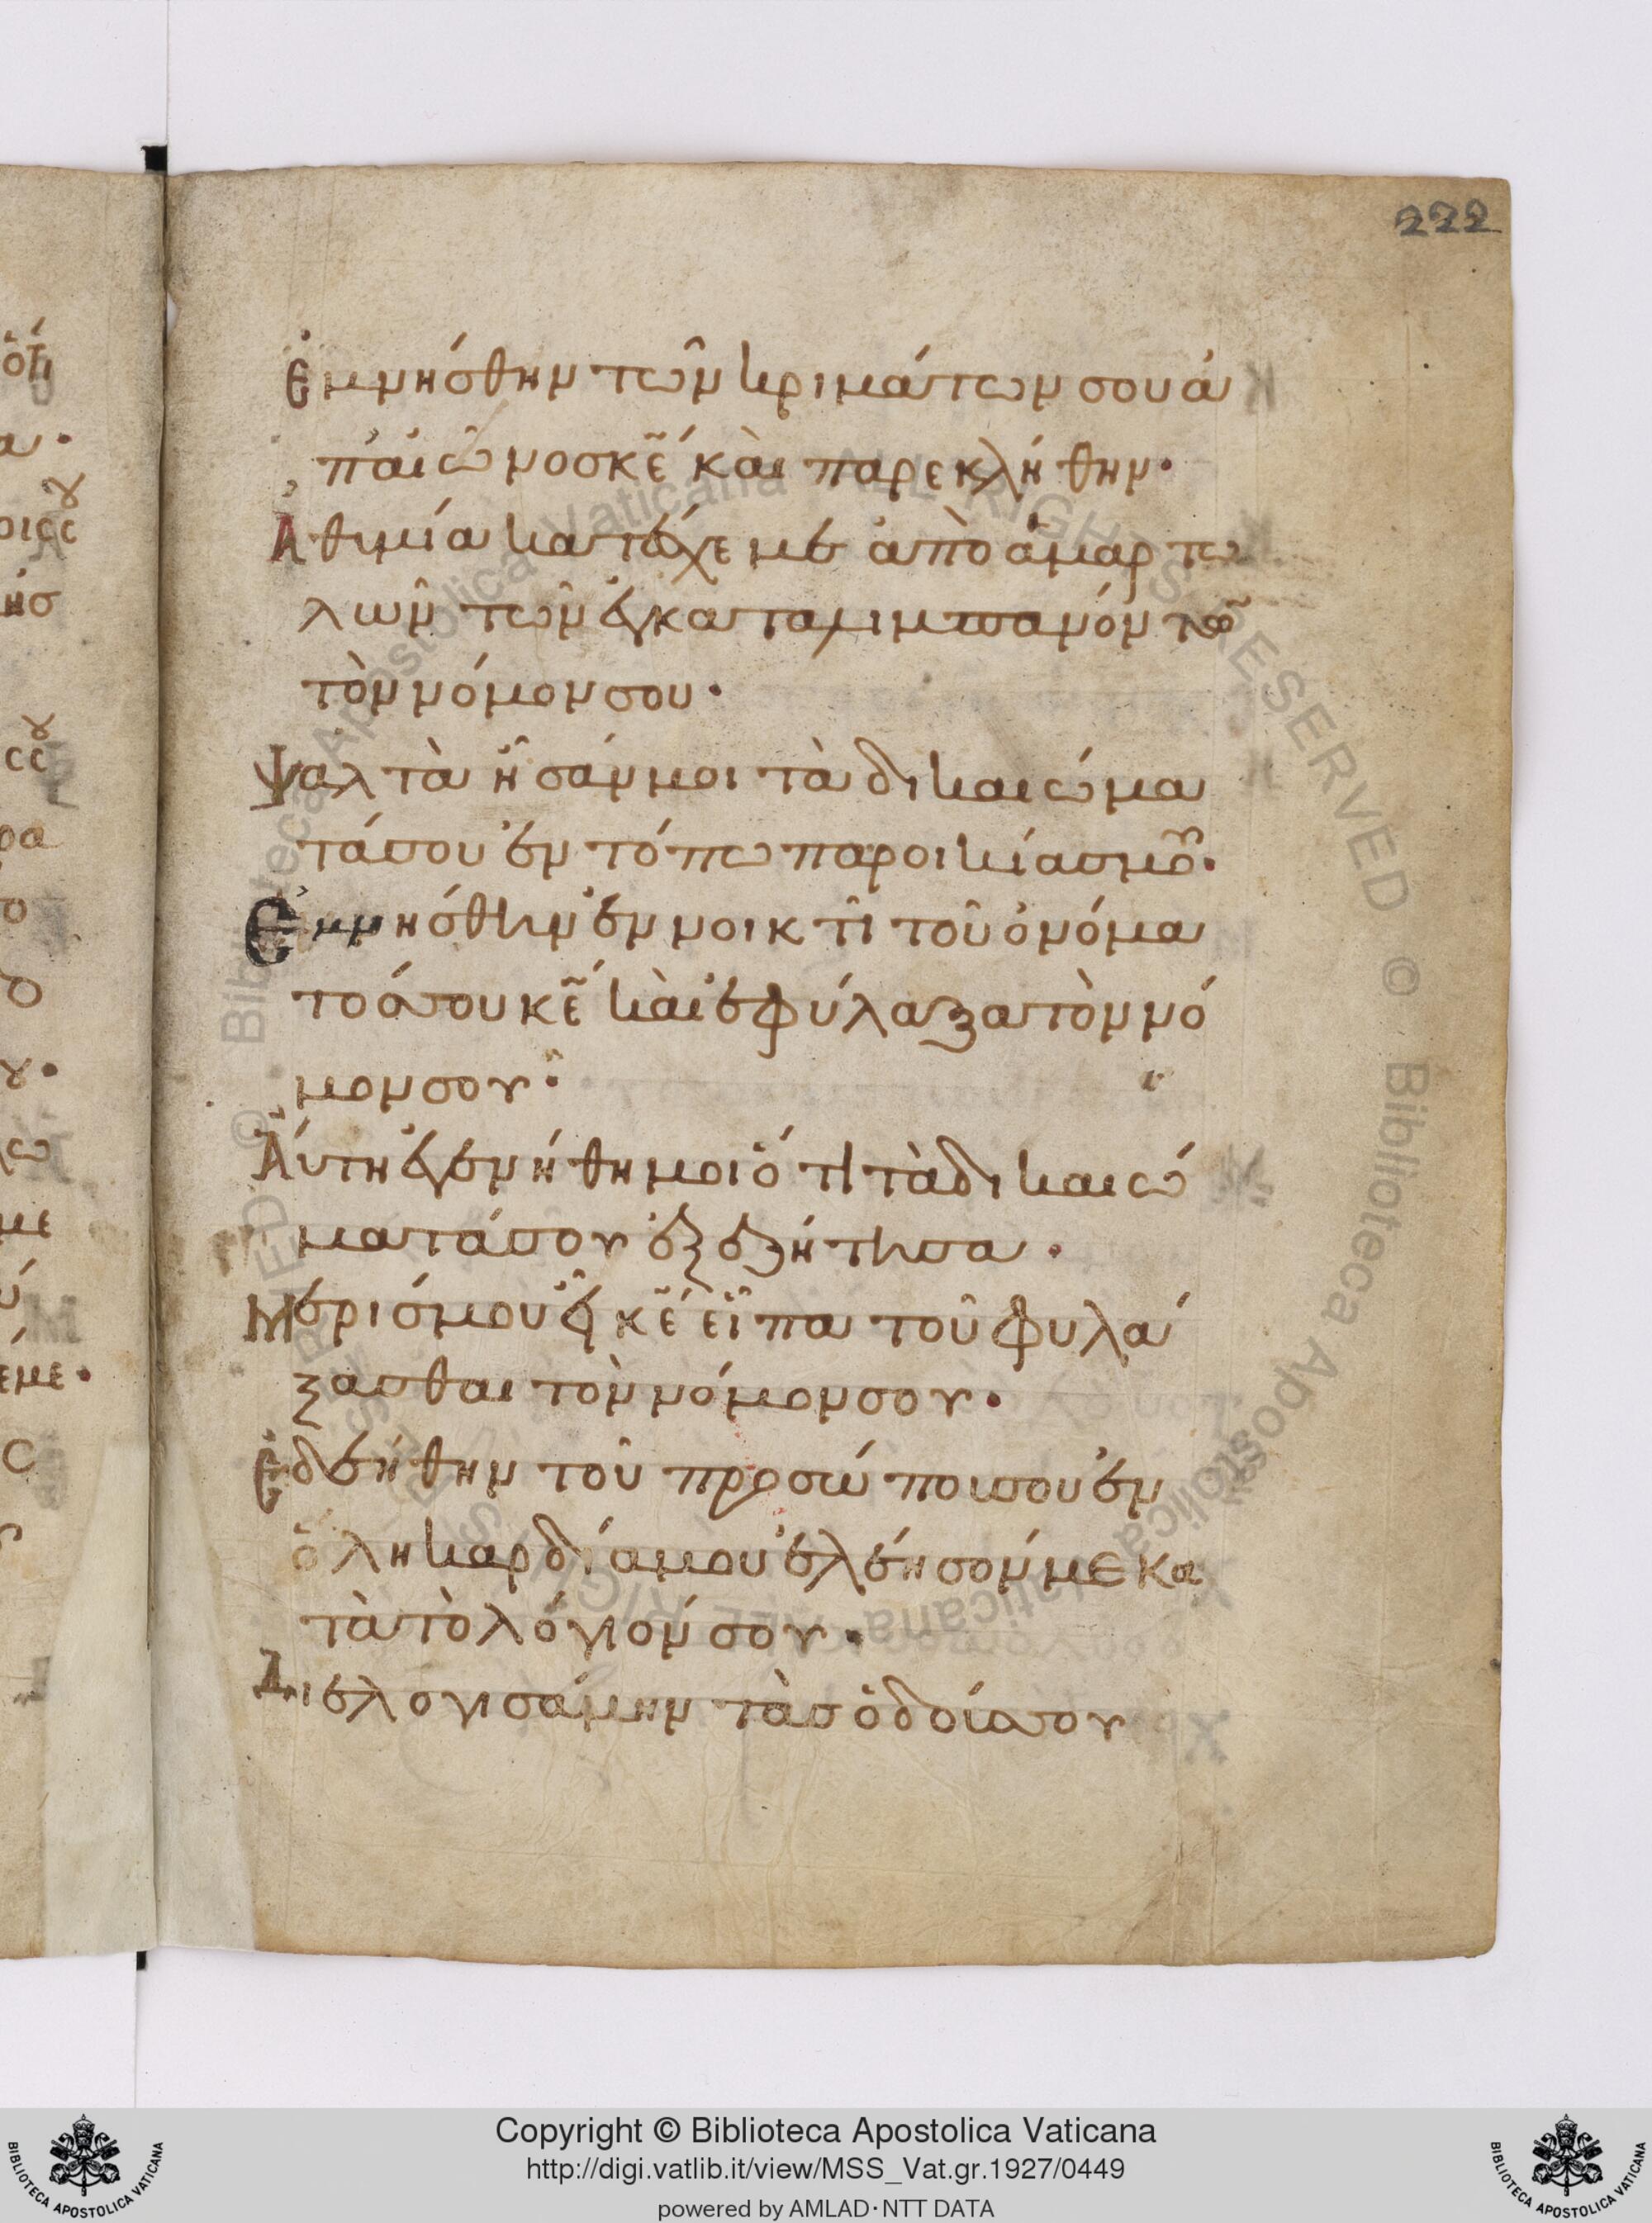 222
ἐμνήσθην τῶν κριμάτων σου ἀ
π' αἰῶνος κ̅ε̅ καὶ παρεκλήθην·
Ἀθυμία κατέσχε με ἀπὸ ἁμαρτω
λῶν τῶν ἐγκαταλιμπανόντων
τὸν νόμον σου·
Ψαλτὰ ἦσάν μοι τὰ δικαιώμα
τά σου ἐν τόπω παροικίας μου·
Ἐμνήσθην ἐν νοικτὶ τοῦ ὀνόμα
τός σου κ̅ε̅ καὶ ἐφύλαξα τὸν νό
μον σου·
Αὕτη ἐγενήθη μοι ὅτι τὰ δικαιώ
ματά σου ἐξεζήτησα·
Μερίς μου εἶ κ̅ε̅ εἶπα τοῦ φυλά
ξασθαι τὸν νόμον σου·
Ἐδεήθην τοῦ προσώπου σου ἐν
ὅλη καρδία μου ἐλέησόν με κα
τὰ τὸ λόγιόν σου·
Διελογισάμην τὰς ὁδούς σου
Copyright © Biblioteca Apostolica Vaticana
http://digi.vatlib.it/view/MSS_Vat.gr.1927/0449
powered by AMLAD·NTT DATA
BIBLIOTECA APOSTOLICA VATICANA
BIBLIOTECA APOSTOLICA VATICANA